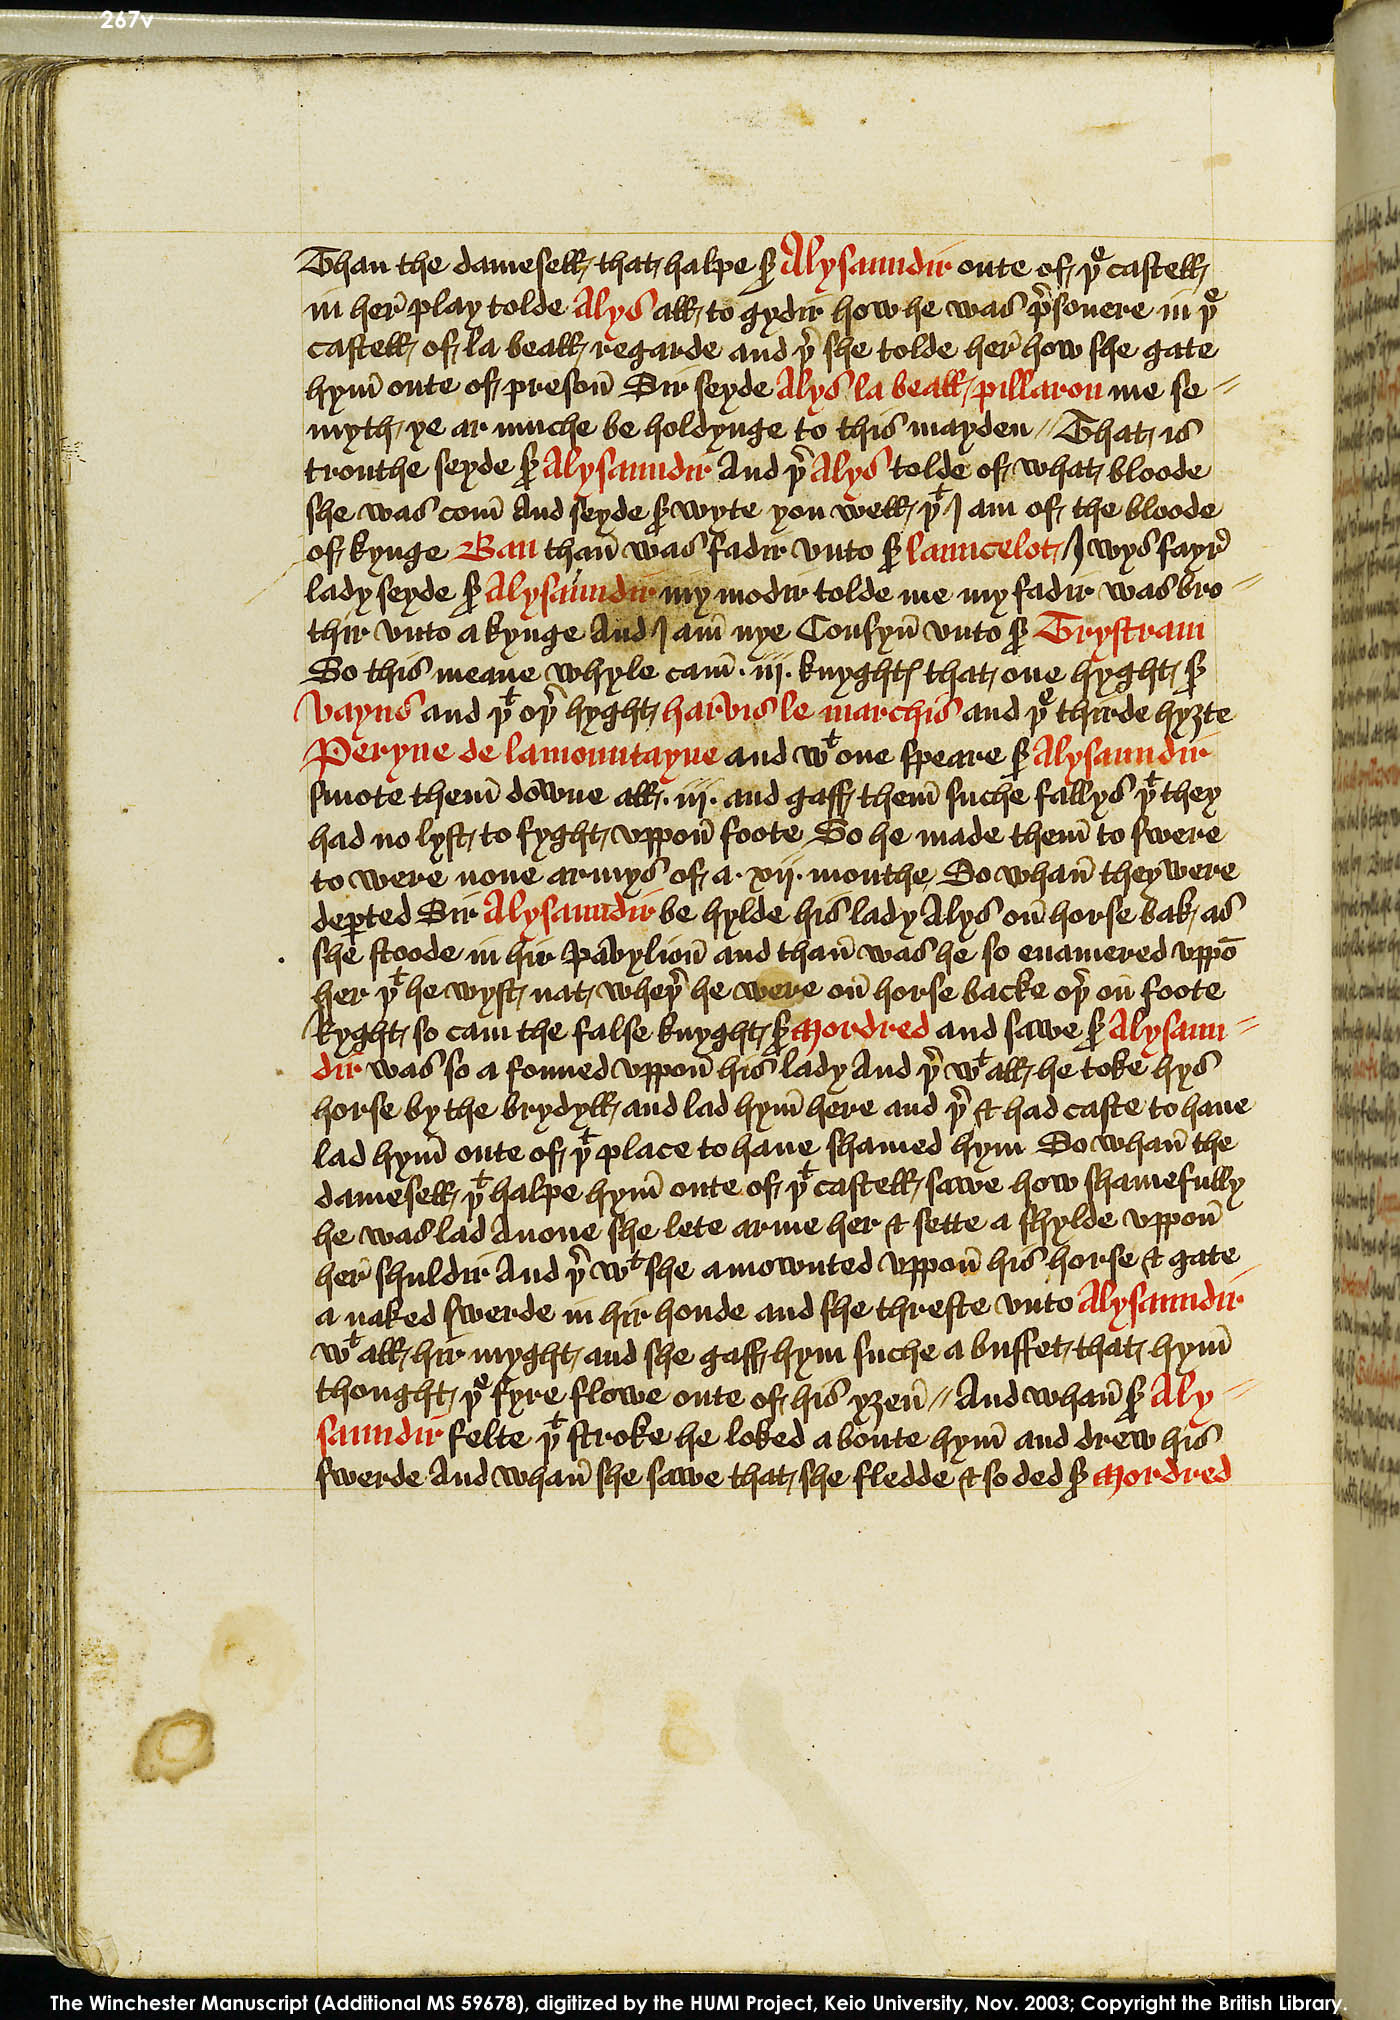 267v
Than the damesell that halpe sr Alysaundir oute of þe castell
in her play tolde Alys all to gydir how he was prsonere in þe
castell of la beall regarde and þr she tolde her how she gate
hym oute of preson Sir seyde Alys la beall pillaron me se=
myth ye ar muche be holdynge to this mayden // That is
trouthe seyde sr Alysaundir And þr Alys tolde of what bloode
she was com And seyde sr wyte you well þt I am of the bloode
of kynge Ban than was fadir vnto sr launcelot I wys fayr
lady seyde sr Alysaundir my modir tolde me my fadir was bro=
thir vnto a kynge And I am nye Cousyn vnto sr Trystram
So this meane whyle cam .iij. knyghtes that one hyght sr
Vayns and þt oþr hyght harvis le marchis and þe thirde hyȝte
Peryne de la mountayne and wt one speare sr Alysaundir
smote them downe all .iij. and gaff them suche fallys þt they
had no lyst to fyght vppon foote So he made them to swere
to were none armys of a .xij. monthe So whan they were
depted Sir Alysaundir be hylde his lady Alys on horse bak as
she stoode in hir Pavylion and than was he so enamered vppō
her þt he wyst nat wheþr he were on horse backe oþr on foote
Ryght so cam the false knyght sr Mordred and sawe sr Alysaun=
dir was so a fonned vppon his lady And þr wt all he toke hys
horse by the brydyll and lad hym here and þr & had caste to haue
lad hym oute of þt place to haue shamed hym So whan the
damesell þt halpe hym oute of þt castell sawe how shamefully
he was lad Anone she lete arme her & sette a shylde vppon
her shuldir And þr wt she amownted vppon his horse & gate
a naked swerde in hir honde and she threste vnto Alysaundir
wt all hir myght and she gaff hym suche a buffet that hym
thought þe fyre flowe oute of his yȝen // And whan sr Aly=
saundir felte þt stroke he loked aboute hym and drew his
swerde And whan she sawe that she fledde & so ded sr Mordred
The Winchester Manuscript (Additional MS 59678), digitized by the HUMI Project, Keio University, Nov. 2003; Copyright the British Library.